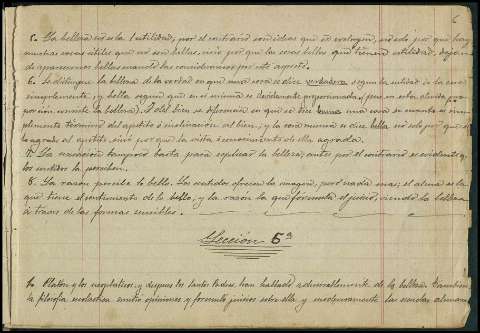 6
5. La belleza no es la utilidad, por el contrario son ideas que se excluyen, no solo por que hay
muchas cosas útiles que no son bellas, sino por que las cosas bellas que tienen utilidad, dejan
de aparecernos bellas cuando las consideramos por este aspecto.
6. Se distingue la belleza de la verdad en que una cosa se dice verdadera segun la entidad de la cosa
simplemente, y bella segun que en sí misma es debidamente proporcionada, (pues en esta debida pro-
porción consiste la belleza). Y del bien se diferencia en que se dice buena una cosa en cuanto es sim-
plemente término del apetito é inclinación al bien; y la cosa nunca se dice bella no solo por que
agrada al apetito sino por que la vista ó conocimiento de ella agrada.
7. La sensación tampoco basta para explicar la belleza, antes por el contrario es evidente q.
los sentidos la perciben.
8. La razon percibe lo bello. Los sentidos ofrecen la imagen, pero nada mas; el alma es la
que tiene el sentimiento de lo bello, y la razon la que formula el juicio, viendo la belleza
á traves de las formas sensibles.
Lección 5ª
1. Platón y los neoplatónicos, y despues los Santos Padres, han hablado admirablemente de la belleza. Tambien
la filosofia escolástica emitió opiniones y formuló juicios sobre ella y modernamente las escuelas alemana